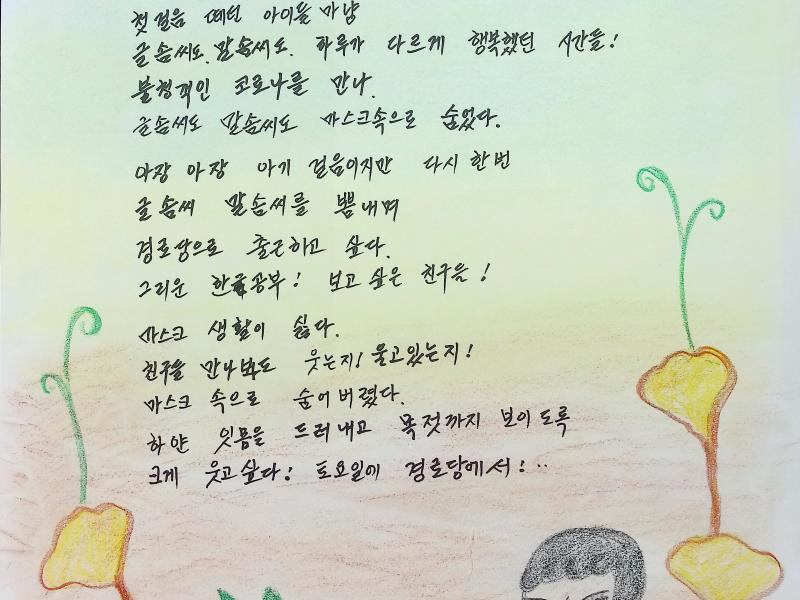 첫걸음 떼던 아이들 마냥
글솜씨도, 말솜씨도, 하루가 다르게 행복했던 시간들!
불청객인 코로나를 만나,
글솜씨도 말솜씨도 마스크속으로 숨었다.
아장 아장 아기 걸음이지만 다시 한번
글솜씨 말솜씨를 뽐내며
경로당으로 출근하고 싶다.
그리운 한글공부! 보고 싶은 친구들!
마스크 생활이 싫다.
친구들 만나봐도 웃는지! 울고있는지!
마스크 속으로 숨어버렸다.
하얀 잇몸을 드러내고 목젓까지 보이도록
크게 웃고싶다! 토요일에 경로당에서!..